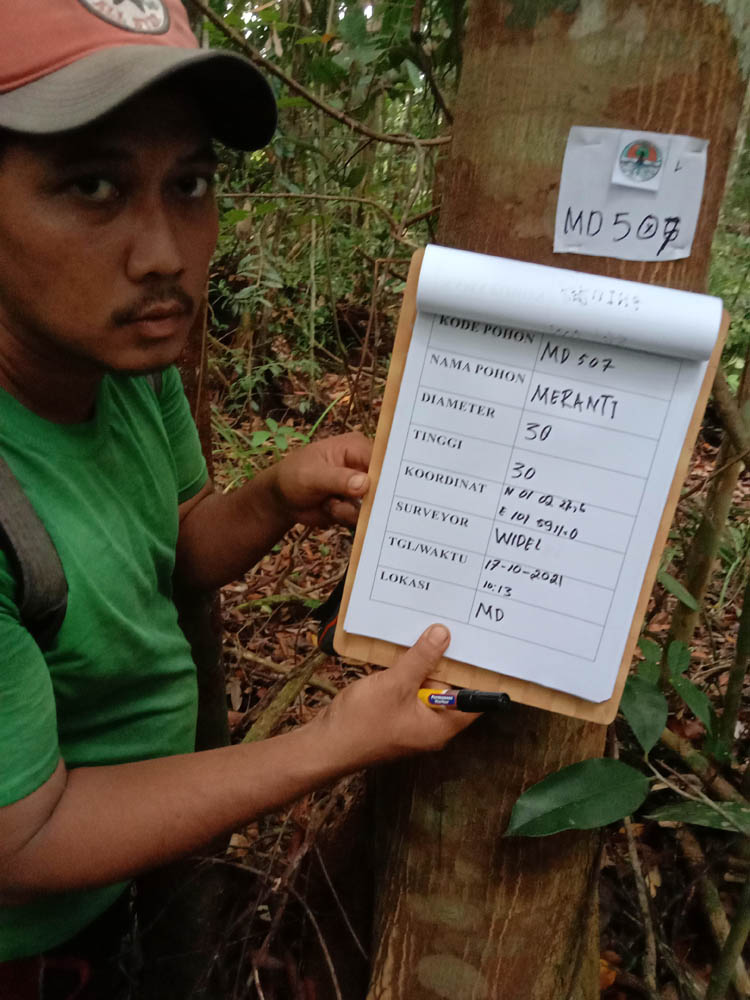 MD 507
KODE POHON MD 507
NAMA POHON MERANTI
DIAMETER 30
TINGGI 30
KOORDINAT N 01 02 27,6
E 101 5911.0
SURVEYOR WIDEL
TGL/WAKTU 17-10-2021
10:13
LOKASI MD
Permanent
Marker